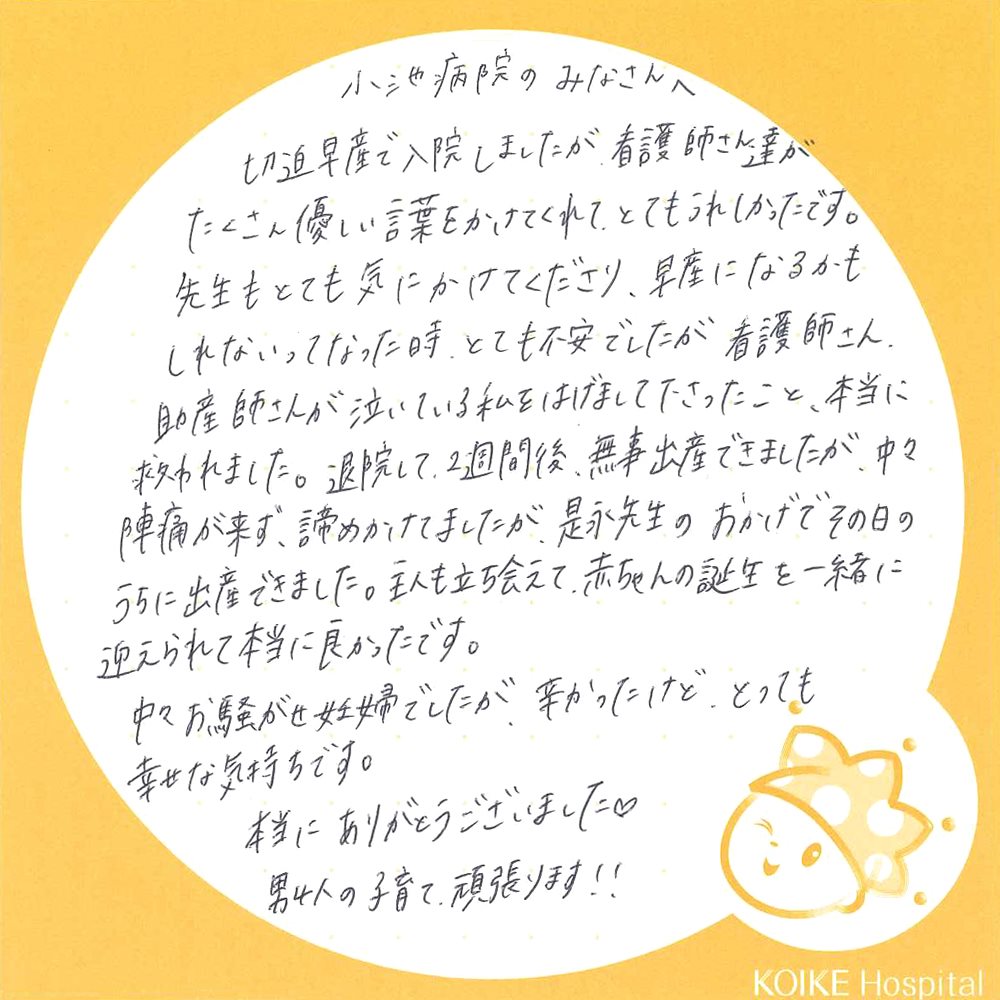 小池病院の みなさんへ
切迫早産で入院しましたが、看護師さん達が
たくさん優しい言葉をかけてくれて、とてもうれしかったです。
先生もとても気にかけてくださり、早産になるかも
しれないってなった時、とても不安でしたが 看護師さん、
助産師さんが泣いている私をはげましてださったこと、本当に
救われました。退院して、2週間後、無事出産できましたが、中々
陣痛が来ず、諦めかけてましたが、是永先生の おかげで その日の
うちに出産できました。主人も立ち会えて、赤ちゃんの誕生を一緒に
迎えられて本当に良かったです。
中々お騒がせ妊婦でしたが、辛かったけど、とっても
幸せな気持ちです。
本当に ありがとうございました♡
男4人の子育て、頑張ります!!
KOIKE Hospital